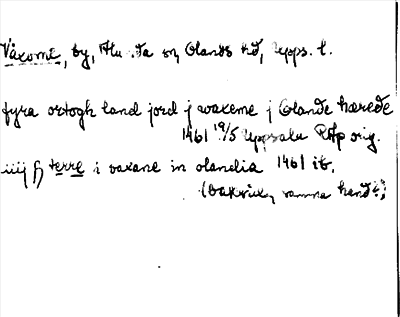 Våxome, by, Alunda sn, Olands hd, Upps. l.
fyra ortogh land jord j waxeme j Olande hærede
1461 19/5 Uppsala RAp orig.
iiij terre i vaxane in olandia 1461 ib.
(baksidan, samma hand?)